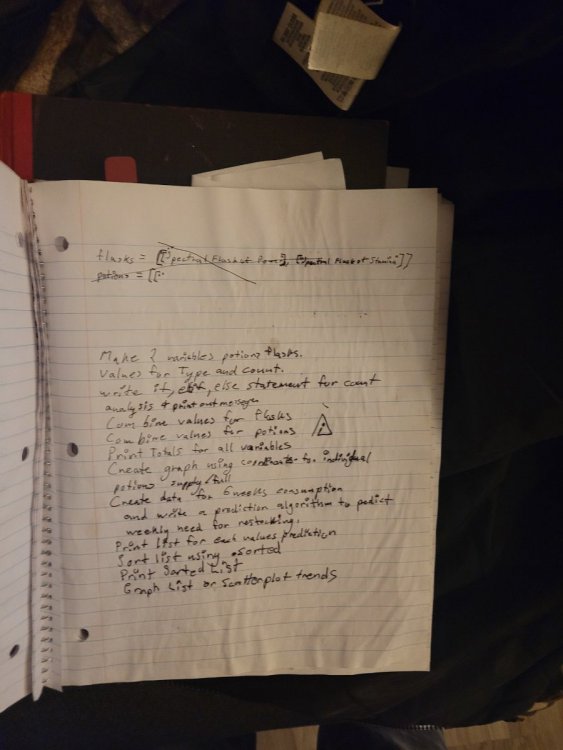 flasks = [[Spectral Flask of Power], [Spectral Flask of Stamina]]
potions = [[
Make 2 variables potions flasks.
Values for Type and count.
write if, elif, else statement for count
analysis & print out messages
Combine values for flasks
Combine values for potions
Print Totals for all variables
Create graph using coordinates for individual
potions supply/full
Create data for 6 weeks consumption
and write a prediction algorithm to pedict
weekly need for restocking.
Print list for each values prediction
Sort list using .sorted
Print Sorted List
Graph List or Scatterplot trends